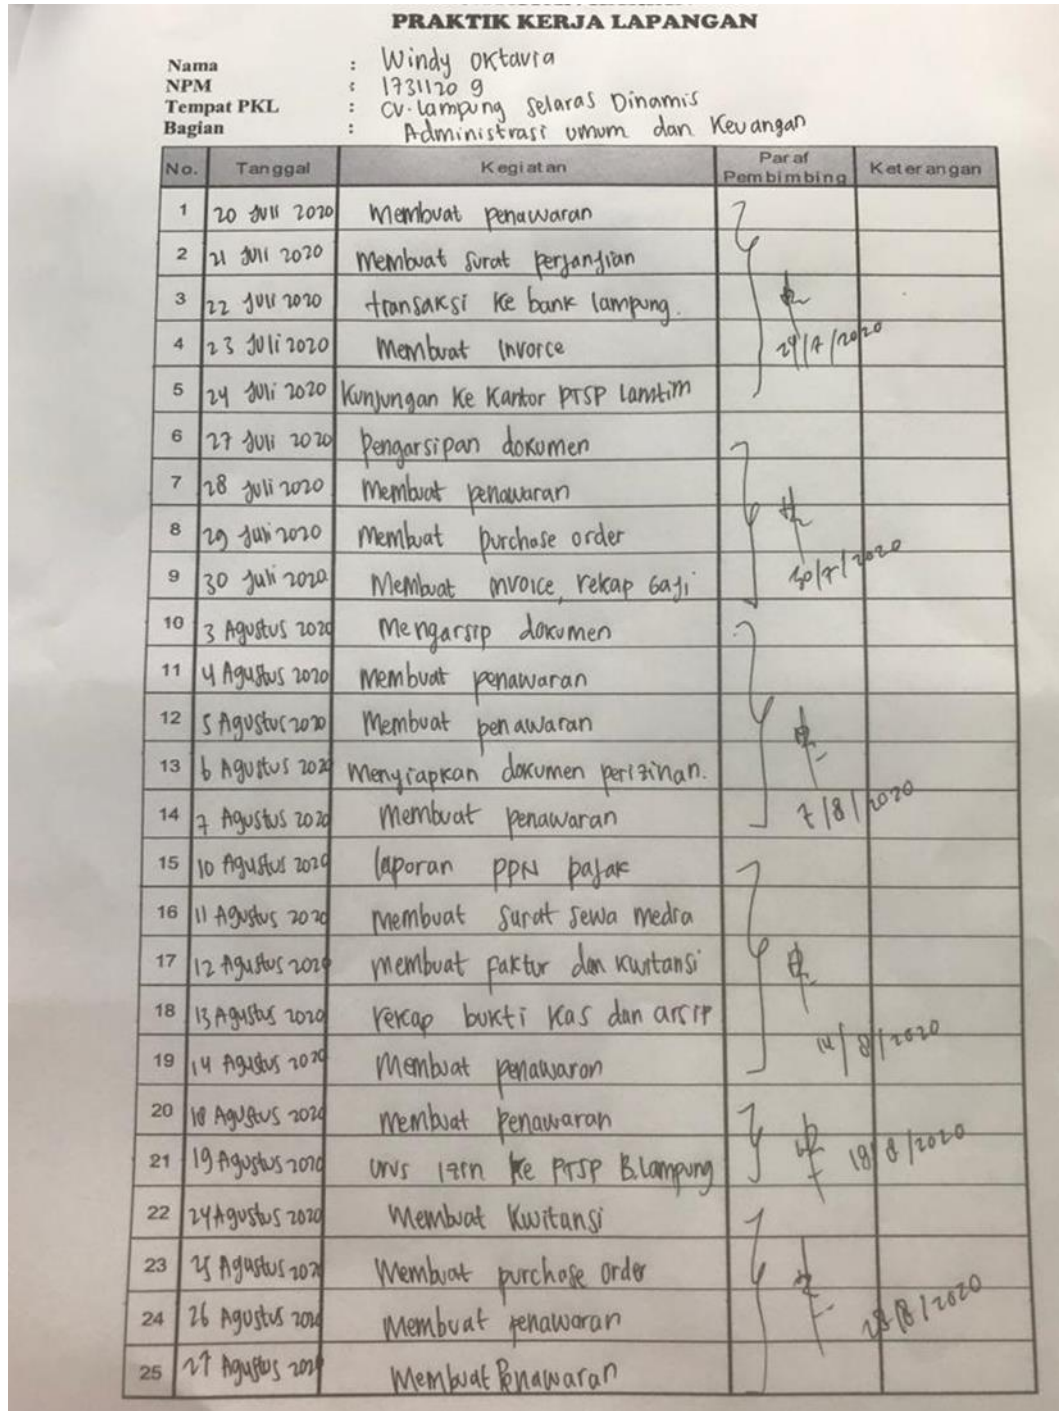 PRAKTIK KERJA LAPANGAN
Nama : Windy Oktavia
NPM : 17311209
Tempat PKL : CV. Lampung Selaras Dinamis
Bagian : Administrasi umum dan Keuangan
No. Tanggal Kegiatan Paraf Pembimbing Keterangan
1 20 Juli 2020 Membuat penawaran
2 21 Juli 2020 Membuat Surat perjanjian
3 22 Juli 2020 transaksi ke bank lampung.
4 23 Juli 2020 Membuat Invoice 24/7/2020
5 24 Juli 2020 Kunjungan Ke Kantor PTSP Lamtim
6 27 Juli 2020 Pengarsipan dokumen
7 28 Juli 2020 Membuat penawaran
8 29 Juli 2020 Membuat purchase order
9 30 Juli 2020 Membuat invoice, rekap Gaji 30/7/2020
10 3 Agustus 2020 Mengarsip dokumen
11 4 Agustus 2020 Membuat penawaran
12 5 Agustus 2020 Membuat penawaran
13 6 Agustus 2020 Menyiapkan dokumen perizinan.
14 7 Agustus 2020 Membuat penawaran 7/8/2020
15 10 Agustus 2020 laporan PPN pajak
16 11 Agustus 2020 Membuat Surat Sewa media
17 12 Agustus 2020 membuat faktur dan kwitansi
18 13 Agustus 2020 rekap bukti kas dan arsip
19 14 Agustus 2020 Membuat penawaran 14/8/2020
20 18 Agustus 2020 membuat penawaran
21 19 Agustus 2020 urus izin ke PTSP B.Lampung 18/8/2020
22 24 Agustus 2020 Membuat Kwitansi
23 25 Agustus 2020 Membuat purchase order
24 26 Agustus 2020 Membuat penawaran 28/8/2020
25 27 Agustus 2020 Membuat Penawaran